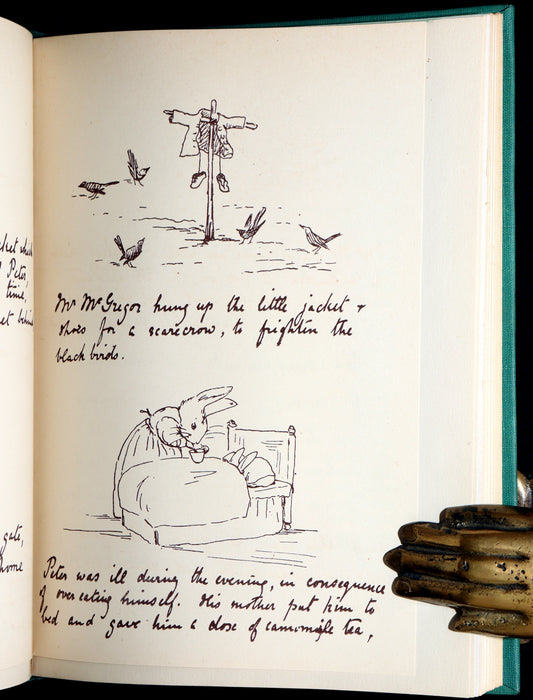 Peter,
time,
gate,
home
Mr McGregor hung up the little jacket +
shoes for a scarecrow, to frighten the
black birds.
Peter was ill during the evening, in consequence
of over eating himself. His mother put him to
bed and gave him a dose of camomile tea,